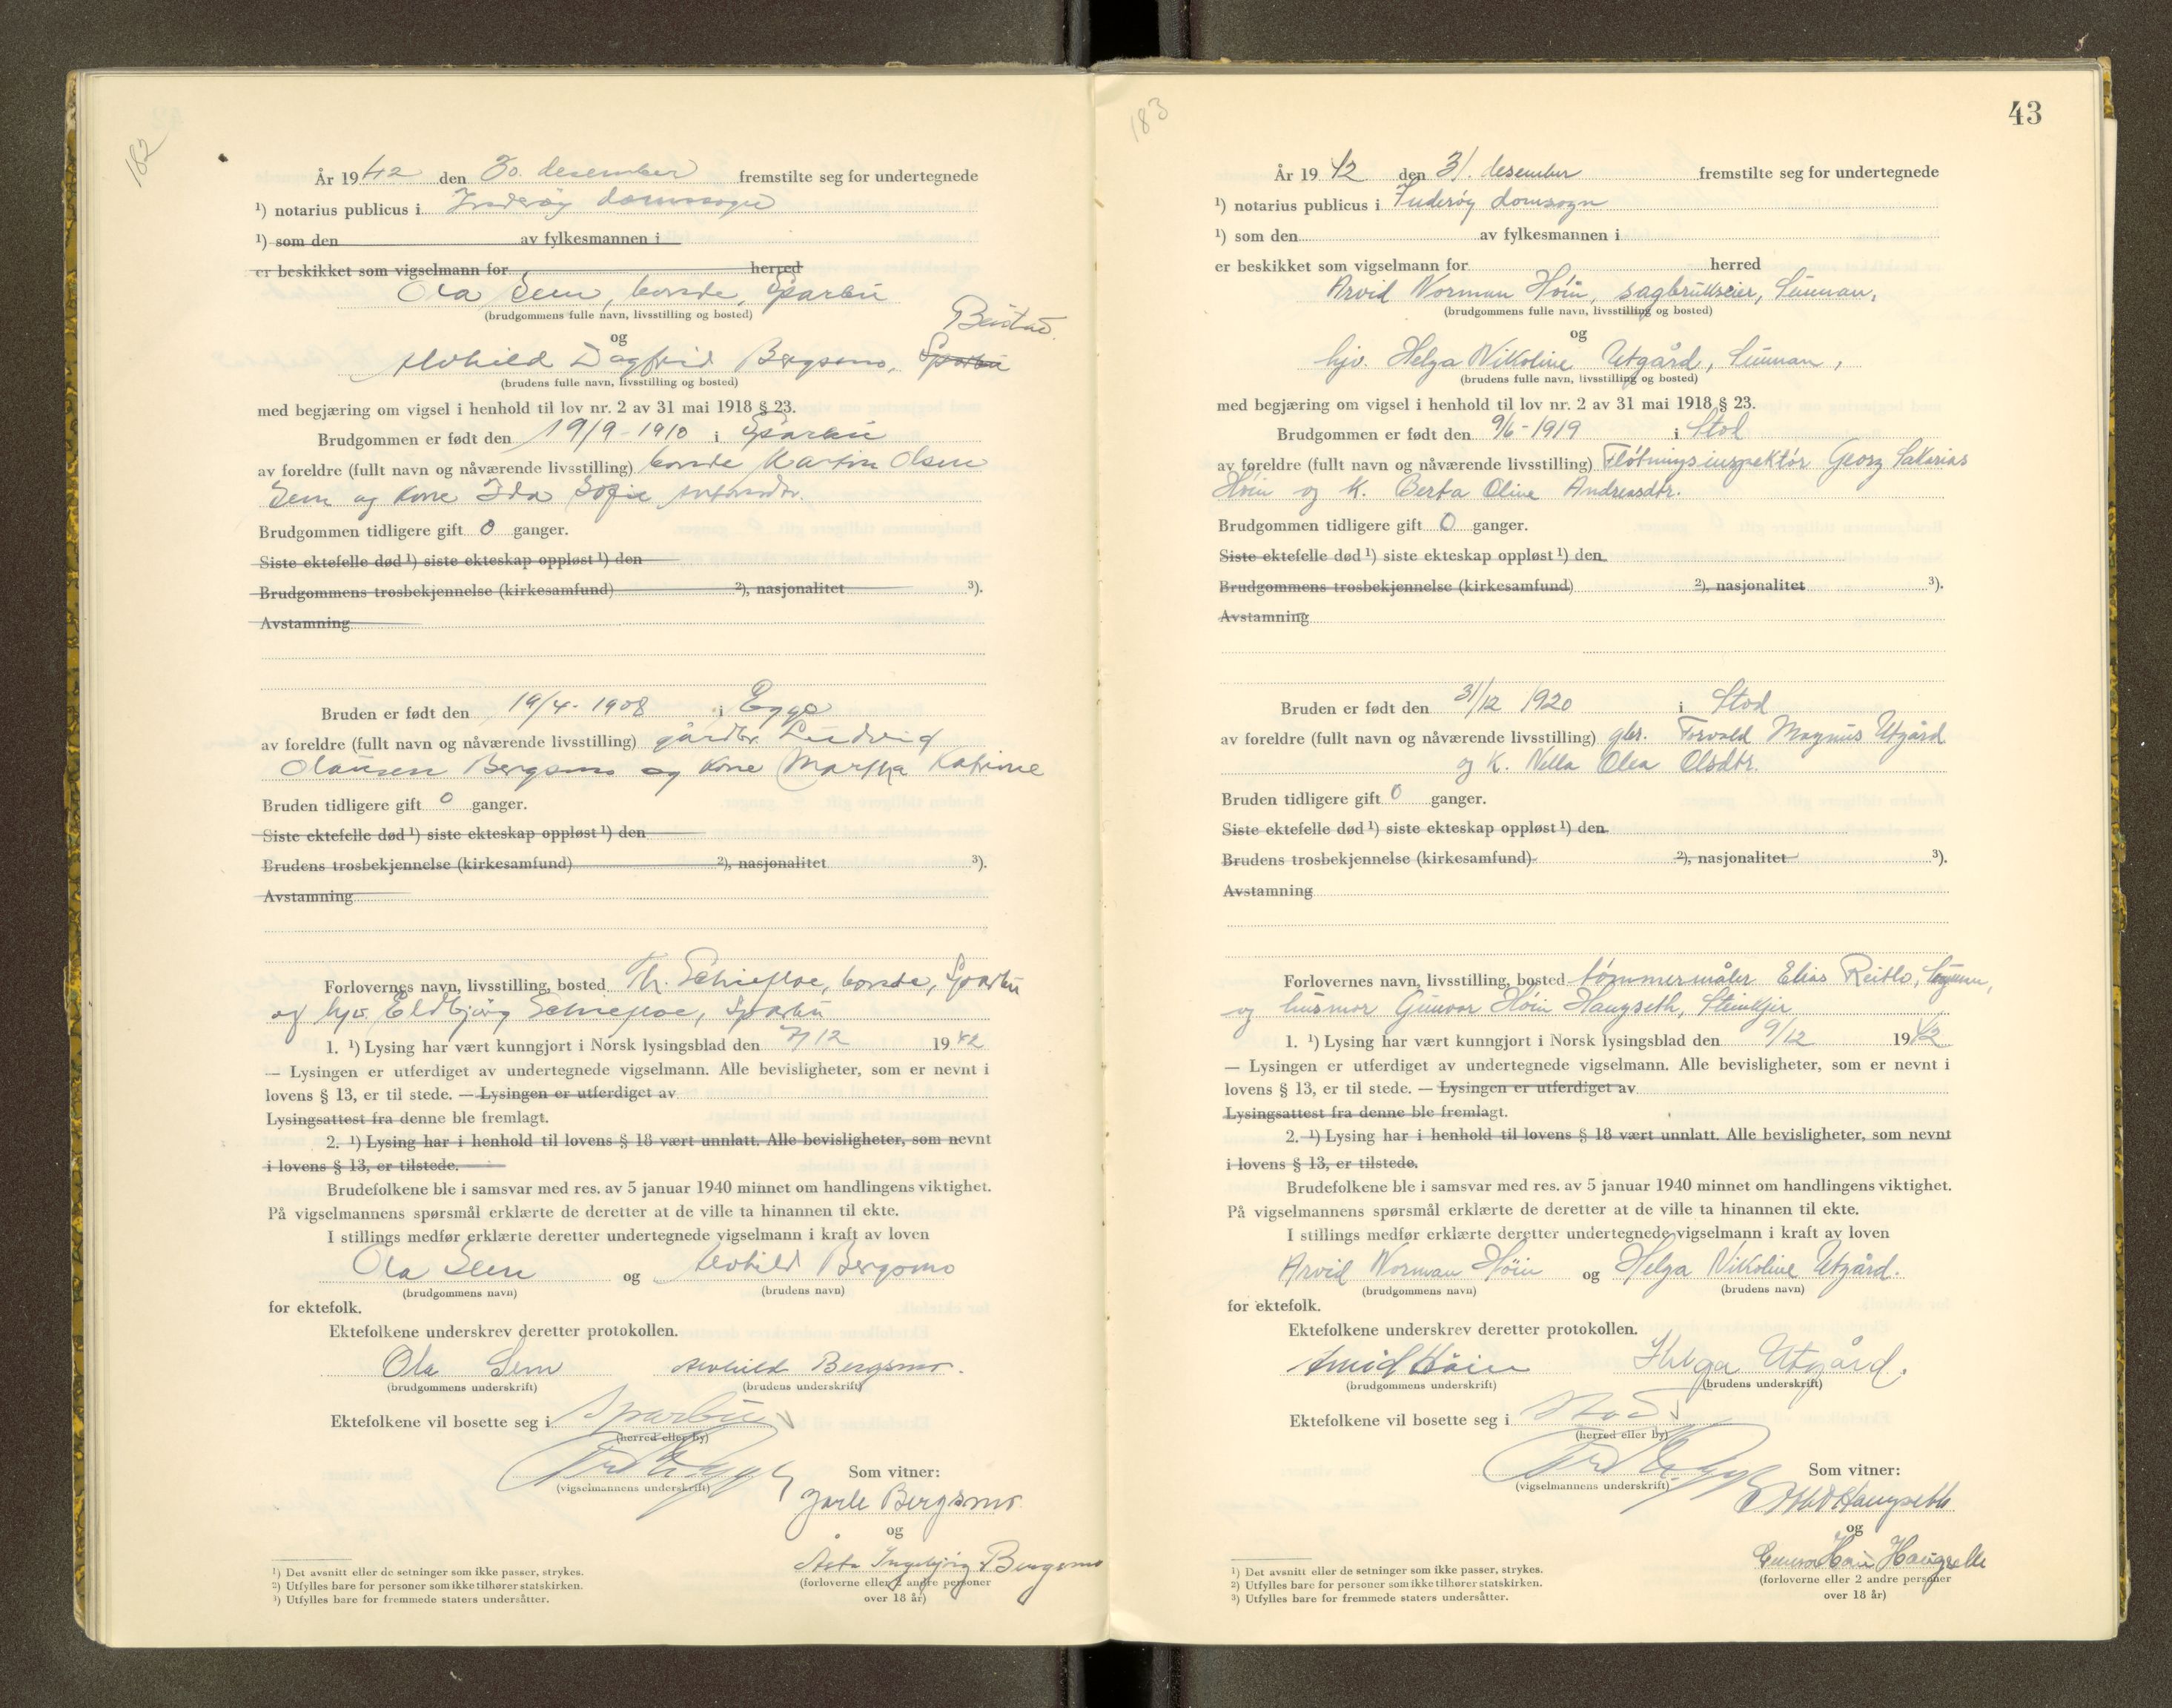 182
År 1942 den 30. desember fremstilte seg for undertegnede
¹) notarius publicus i Inderøy domssogn
¹) som den av fylkesmannen i
er beskikket som vigselmann for herred
Ola Sem, bonde, Sparbu
(brudgommens fulle navn, livsstilling og bosted)
og
Beistad
Alvhild Dagfrid Bergsmo, Sparbu
(brudens fulle navn, livsstilling og bosted)
med begjæring om vigsel i henhold til lov nr. 2 av 31 mai 1918 § 23.
Brudgommen er født den 19/9 - 1910 i Sparbu
av foreldre (fullt navn og nåværende livsstilling) bonde Martin Olsen
Sem og kone Ida Sofie
Brudgommen tidligere gift 0 ganger.
Siste ektefelle død ¹) siste ekteskap oppløst ¹) den
Brudgommens trosbekjennelse (kirkesamfund) ²), nasjonalitet ³).
Avstamning
Bruden er født den 19/4 - 1908 i Egge
av foreldre (fullt navn og nåværende livsstilling) gårdbr. Ludvig
Olausen Bergsmo og kone Martha Katrine
Bruden tidligere gift 0 ganger.
Siste ektefelle død ¹) siste ekteskap oppløst ¹) den
Brudens trosbekjennelse (kirkesamfund) ²), nasjonalitet ³).
Avstamning
Forlovernes navn, livsstilling, bosted Th. Schiefloe, bonde, Sparbu
og hjv. Eldbjørg Schiefloe, Sparbu
1. ¹) Lysing har vært kunngjort i Norsk lysingsblad den 7/12 1942
— Lysingen er utferdiget av undertegnede vigselmann. Alle bevisligheter, som er nevnt i
lovens § 13, er til stede. — Lysingen er utferdiget av
Lysingsattest fra denne ble fremlagt.
2. ¹) Lysing har i henhold til lovens § 18 vært unnlatt. Alle bevisligheter, som nevnt
i lovens § 13, er tilstede.
Brudefolkene ble i samsvar med res. av 5 januar 1940 minnet om handlingens viktighet.
På vigselmannens spørsmål erklærte de deretter at de ville ta hinannen til ekte.
I stillings medfør erklærte deretter undertegnede vigselmann i kraft av loven
Ola Sem og Alvhild Bergsmo
(brudgommens navn) (brudens navn)
for ektefolk.
Ektefolkene underskrev deretter protokollen.
Ola Sem Alvhild Bergsmo.
(brudgommens underskrift) (brudens underskrift)
Ektefolkene vil bosette seg i Sparbu
(herred eller by)
(vigselmannens underskrift)
Som vitner:
Jarle Bergsmo
og
Åsta Ingebjørg Bergsmo
(forloverne eller 2 andre personer
over 18 år)
¹) Det avsnitt eller de setninger som ikke passer, strykes.
²) Utfylles bare for personer som ikke tilhører statskirken.
³) Utfylles bare for fremmede staters undersåtter.
183
43
År 1942 den 31. desember fremstilte seg for undertegnede
¹) notarius publicus i Inderøy domsogn
¹) som den av fylkesmannen i
er beskikket som vigselmann for herred
Arvid Norman Höin, sagbrukseier, Sunnan,
(brudgommens fulle navn, livsstilling og bosted)
og
hjv. Helga Nikoline Utgård, Sunnan,
(brudens fulle navn, livsstilling og bosted)
med begjæring om vigsel i henhold til lov nr. 2 av 31 mai 1918 § 23.
Brudgommen er født den 9/6 - 1919 i Stod
av foreldre (fullt navn og nåværende livsstilling) Flötningsinspektör Georg Sakarias
Höin og k. Berta Oline Andreasdtr.
Brudgommen tidligere gift 0 ganger.
Siste ektefelle død ¹) siste ekteskap oppløst ¹) den
Brudgommens trosbekjennelse (kirkesamfund) ²), nasjonalitet ³).
Avstamning
Bruden er født den 31/12 1920 i Stod
av foreldre (fullt navn og nåværende livsstilling) gbr. Torvald Magnus Utgård
og k. Nella Olea Olsdtr.
Bruden tidligere gift 0 ganger.
Siste ektefelle død ¹) siste ekteskap oppløst ¹) den
Brudens trosbekjennelse (kirkesamfund) ²), nasjonalitet ³).
Avstamning
Forlovernes navn, livsstilling, bosted tömmermåler Elias Reitlo, Sunnan,
og husmor Gunvor Höin Haugseth, Steinkjer
1. ¹) Lysing har vært kunngjort i Norsk lysingsblad den 9/12 1942
— Lysingen er utferdiget av undertegnede vigselmann. Alle bevisligheter, som er nevnt i
lovens § 13, er til stede. — Lysingen er utferdiget av
Lysingsattest fra denne ble fremlagt.
2. ¹) Lysing har i henhold til lovens § 18 vært unnlatt. Alle bevisligheter, som nevnt
i lovens § 13, er tilstede.
Brudefolkene ble i samsvar med res. av 5 januar 1940 minnet om handlingens viktighet.
På vigselmannens spørsmål erklærte de deretter at de ville ta hinannen til ekte.
I stillings medfør erklærte deretter undertegnede vigselmann i kraft av loven
Arvid Norman Höin og Helga Nikoline Utgård.
(brudgommens navn) (brudens navn)
for ektefolk.
Ektefolkene underskrev deretter protokollen.
Arvid Höin Helga Utgård.
(brudgommens underskrift) (brudens underskrift)
Ektefolkene vil bosette seg i Stod
(herred eller by)
(vigselmannens underskrift)
Som vitner:
Haugseth
og
Gunvor Höin Haugseth
(forloverne eller 2 andre personer
over 18 år)
¹) Det avsnitt eller de setninger som ikke passer, strykes.
²) Utfylles bare for personer som ikke tilhører statskirken.
³) Utfylles bare for fremmede staters undersåtter.